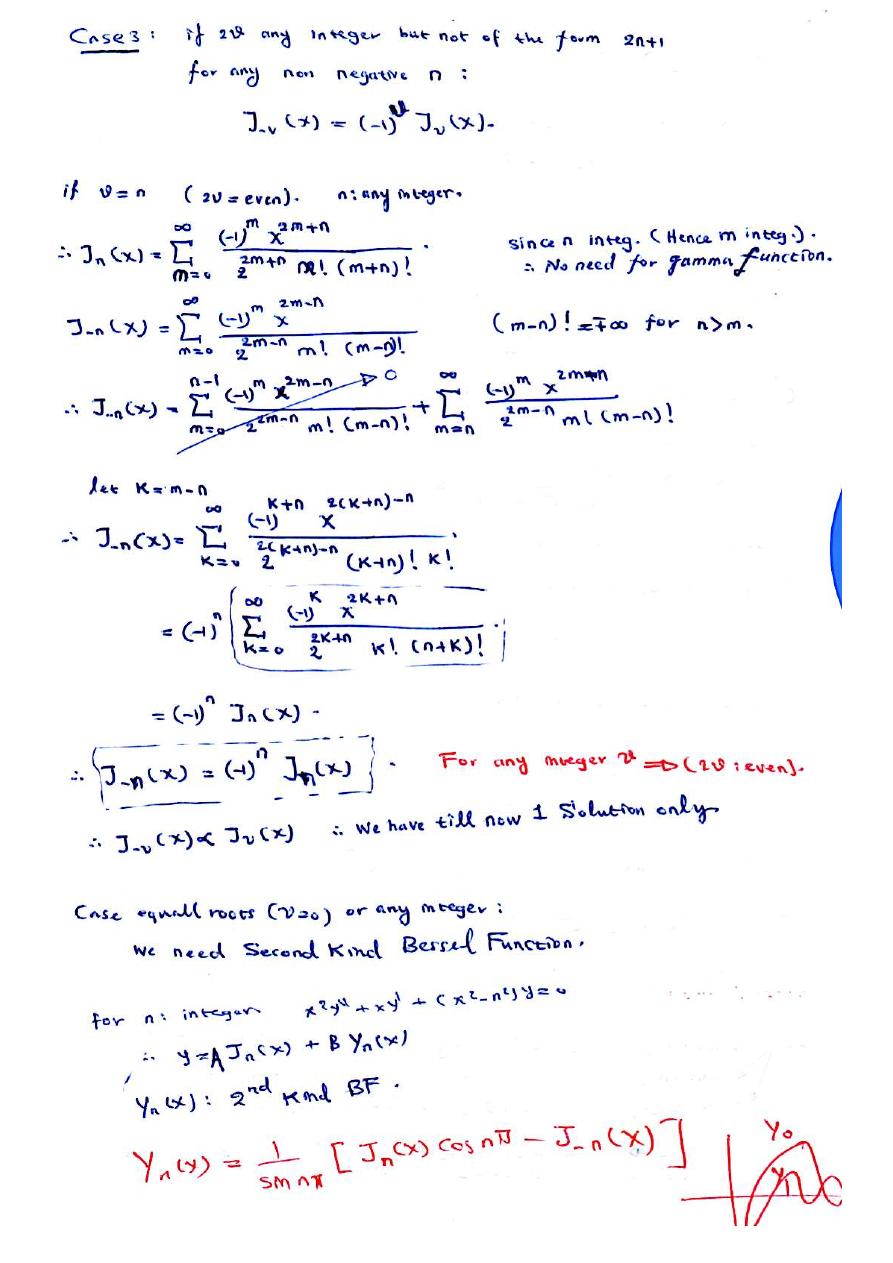 Case 3 : if 2ν any integer but not of the form 2n+1
for any non negative n :
J₋ᵥ (x) = (-1)^ν Jᵥ(x).
if ν = n (2ν = even). n: any integer.
∴ Jₙ(x) = Σ_{m=0}^{∞} (-1)^m x^{2m+n} / 2^{2m+n} m! (m+n)! . since n integ. (Hence m integ.).
∴ No need for gamma function.
J₋ₙ(x) = Σ_{m=0}^{∞} (-1)^m x^{2m-n} / 2^{2m-n} m! (m-n)! (m-n)! = ∓∞ for n>m.
∴ J₋ₙ(x) = Σ_{m=0}^{n-1} (-1)^m x^{2m-n} / 2^{2m-n} m! (m-n)! → 0 + Σ_{m=n}^{∞} (-1)^m x^{2m-n} / 2^{2m-n} m! (m-n)!
let K = m-n
∴ J₋ₙ(x) = Σ_{K=0}^{∞} (-1)^{K+n} x^{2(K+n)-n} / 2^{2(K+n)-n} (K+n)! K! .
= (-1)^n Σ_{K=0}^{∞} (-1)^K x^{2K+n} / 2^{2K+n} K! (n+K)! .
= (-1)^n Jₙ(x) .
∴ J₋ₙ(x) = (-1)^n Jₙ(x) . For any integer ν ⇒ (2ν : even).
∴ J₋ᵥ(x) ∝ Jᵥ(x) ∴ We have till now 1 Solution only
Case equall roots (ν=0) or any integer :
We need Second Kind Bessel Function.
for n: integer x²y'' + xy' + (x²-n²)y = 0
∴ y = A Jₙ(x) + B Yₙ(x)
Yₙ(x) : 2nd Kind BF .
Yₙ(x) = 1 / sin nπ [ Jₙ(x) cos nπ - J₋ₙ(x) ]
Y₀